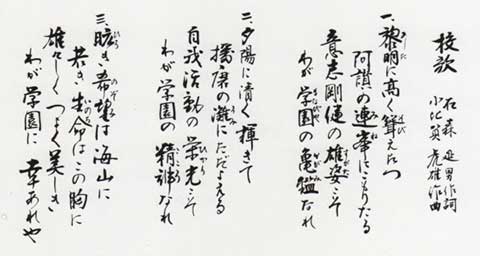 校歌
石森延男作詞
小比賀虎雄作曲
一、黎明に高く聳えたつ
阿讃の連峯にこもりたる
意志剛健の雄姿こそ
わが学園の亀鑑なれ
二、夕陽に清く輝きて
播磨の灘にたゞよえる
自我活動の栄光こそ
わが学園の精神なれ
三、昿き希望は海山に
若き生命はこの胸に
雄々しくつよく美しき
わが学園に幸あれや